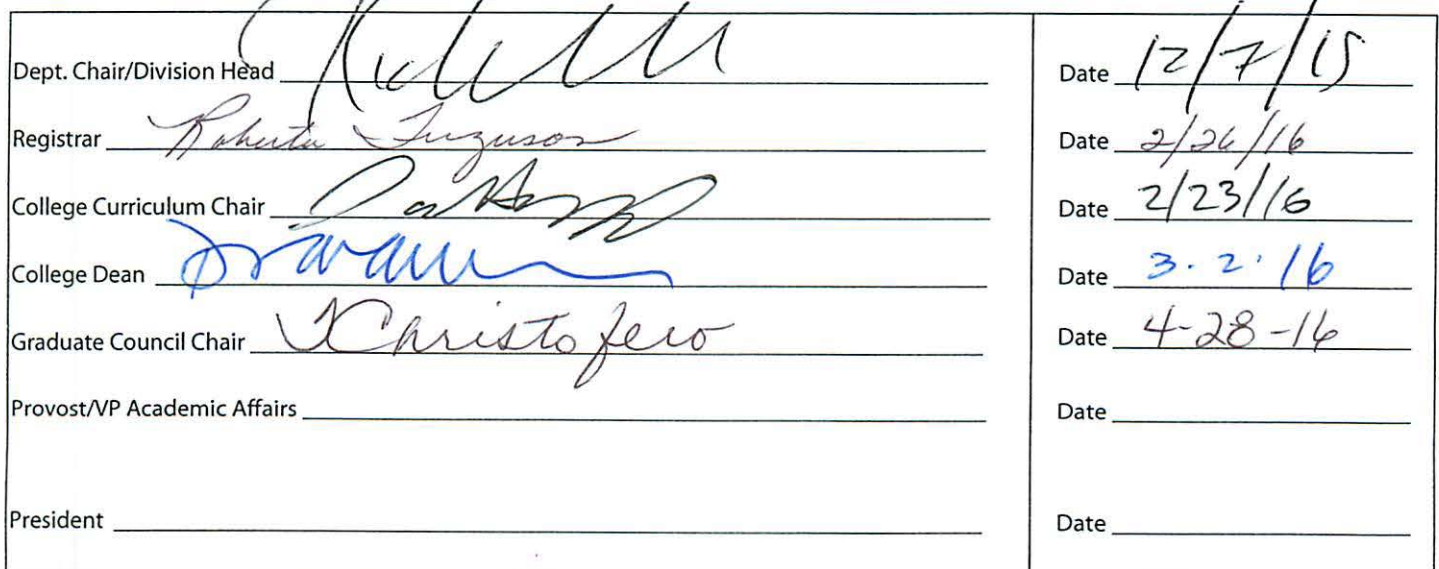 Dept. Chair/Division Head Date 12/7/15
Registrar Roberta Ferguson Date 2/26/16
College Curriculum Chair Date 2/23/16
College Dean Date 3.2.16
Graduate Council Chair TChristofero Date 4-28-16
Provost/VP Academic Affairs Date
President Date